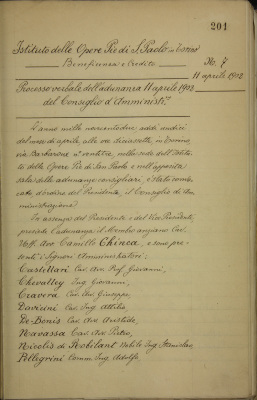 201
Istituto delle Opere Pie di S. Paolo in Torino
Beneficenza e Credito
No. 7
11 aprile 1902
Processo verbale dell'adunanza 11 aprile 1902
del Consiglio d'Amministr.
L'anno mille novecentodue addì undici
del mese di aprile, alle ore in Torino,
via nella sede dell'Istitu-
to delle Opere Pie di San Paolo e nell'apposita
sala delle adunanze consigliari, è stato convo-
cato, d'ordine del Presidente, il Consiglio di Am-
ministrazione.
In assenza del Presidente e del Vice Presidente,
presiede l'adunanza il Membro anziano Cav.
Uff. Avv. Camillo Chinea, e sono pre-
senti i Signori Amministratori:
Castellari Cav. Avv. Prof. Giovanni,
Chevalley Ing. Giovanni,
Cravero Cav. Giuseppe,
Daviani Cav. Ing. Attilio
De-Bonis Cav. Avv. Aristide,
Ravassa Cav. Avv. Pietro,
Nicolis di Robilant Nobile Ing. Stanislao,
Pellegrini Comm. Ing. Adolfo